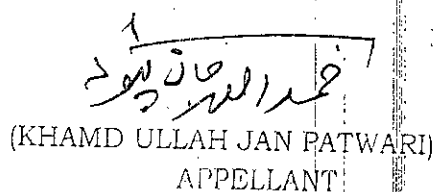 حمد اللہ جان پٹواری
(KHAMD ULLAH JAN PATWARI)
APPELLANT